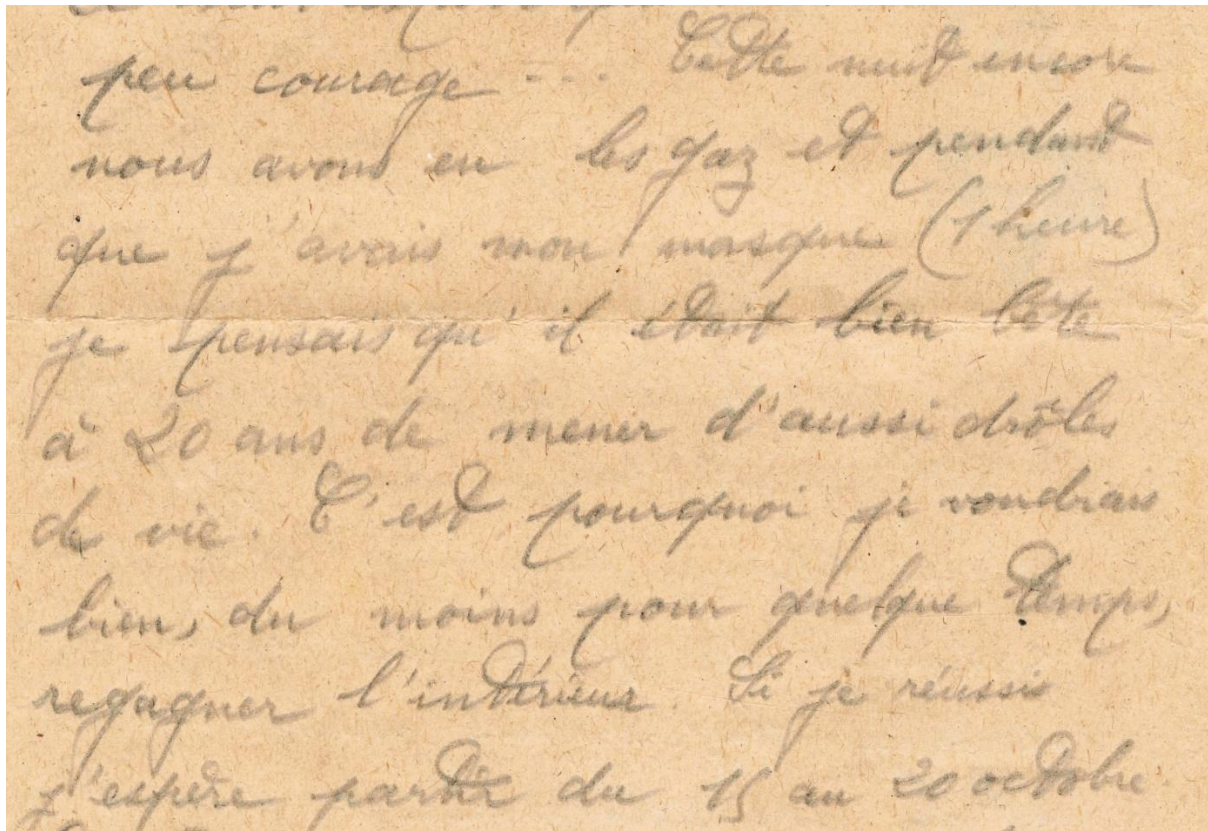 peu courage -... Cette nuit encore
nous avons eu les gaz et pendant
que j'avais mon masque (1 heure)
je pensais qu'il était bien bête
à 20 ans de mener d'aussi drôles
de vie. C'est pourquoi je voudrais
bien, du moins pour quelque temps,
regagner l'intérieur. Si je réussis
j'espère partir du 15 au 20 octobre.